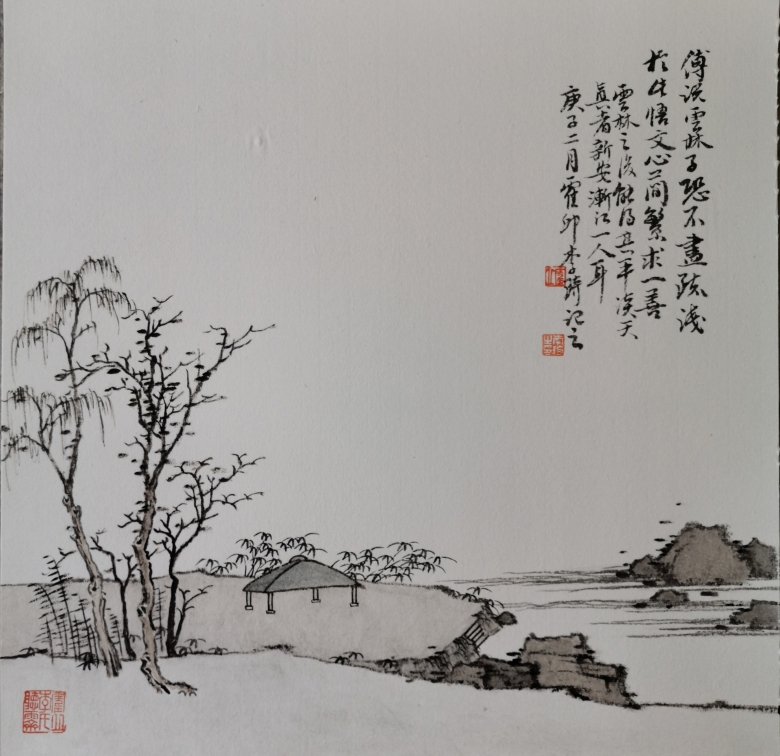 傅说雲林子恐不盡疏淺
於此悟文心简繁求一善
雲林之後能得其平淡天
真者新安漸江一人耳
庚子二月霍邱李琦记之